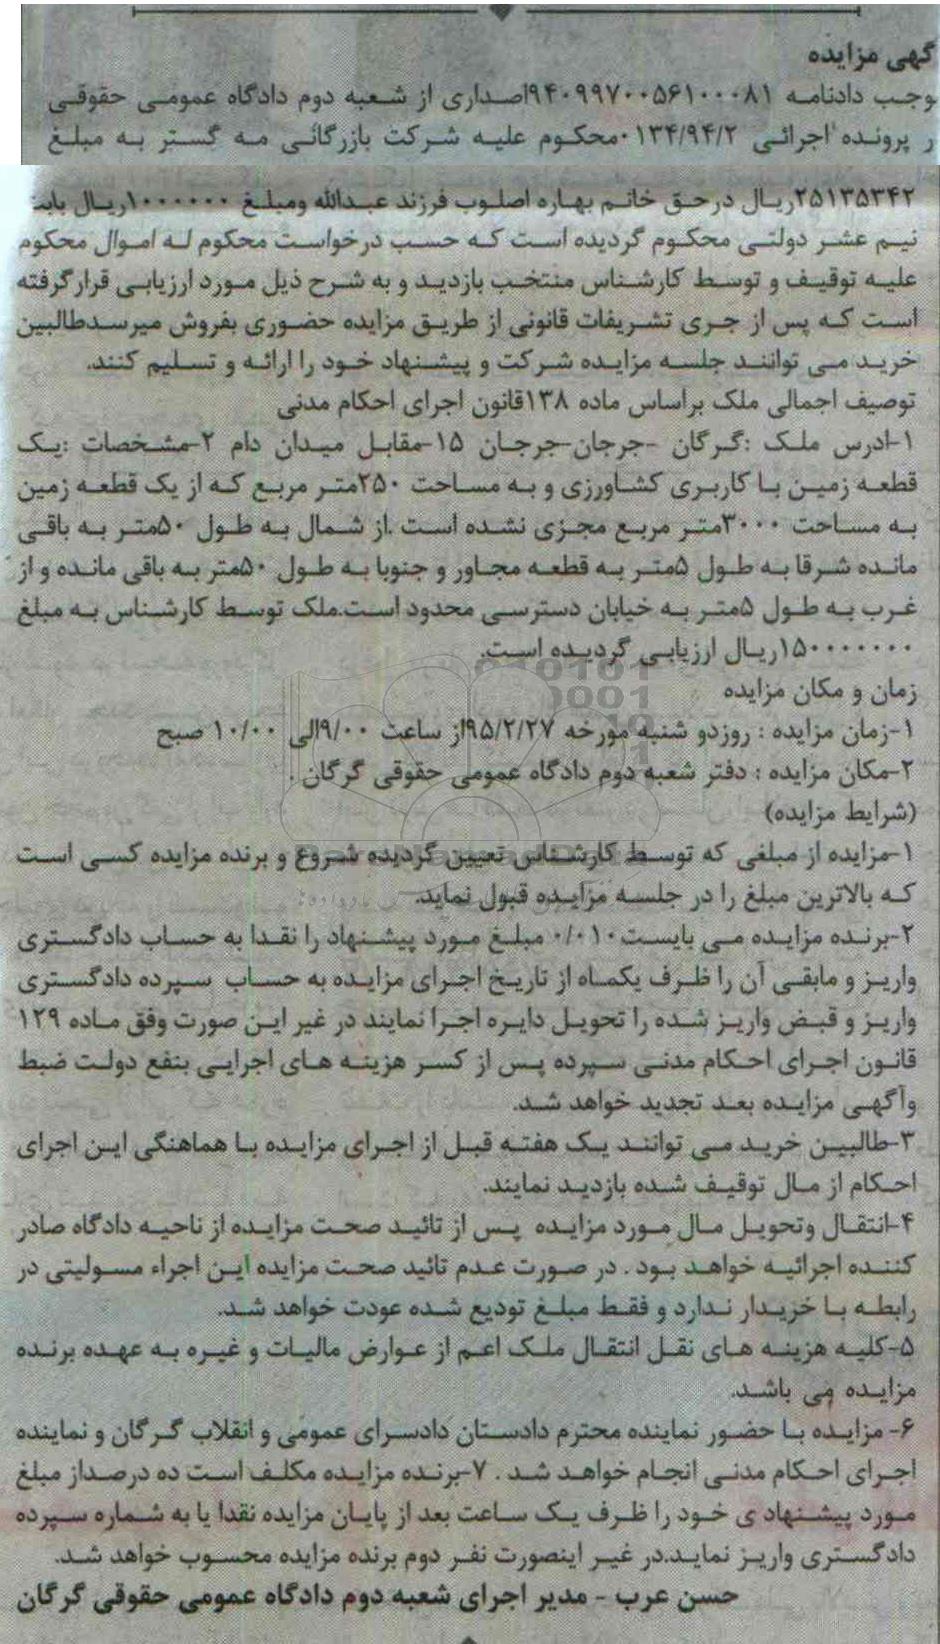 گهی مزایده
وجب دادنامه ۹۴۰۹۹۷۰۰۵۶۱۰۰۰۸۱اصداری از شعبه دوم دادگاه عمومی حقوقی
ر پرونده اجرائی ۰۱۳۴/۹۴/۲محکوم علیه شرکت بازرگانی مه گستر به مبلغ
۲۵۱۳۵۳۴۲ریال درحق خانم بهاره اصلوب فرزند عبدالله ومبلغ ۱۰۰۰۰۰۰ریال بابت
نیم عشر دولتی محکوم گردیده است که حسب درخواست محکوم له اموال محکوم
علیه توقیف و توسط کارشناس منتخب بازدید و به شرح ذیل مورد ارزیابی قرارگرفته
است که پس از جری تشریفات قانونی از طریق مزایده حضوری بفروش میرسدطالبین
خرید می توانند جلسه مزایده شرکت و پیشنهاد خود را ارائه و تسلیم کنند.
توصیف اجمالی ملک براساس ماده ۱۳۸قانون اجرای احکام مدنی
۱-ادرس ملک :گرگان -جرجان-جرجان ۱۵-مقابل میدان دام ۲-مشخصات :یک
قطعه زمین با کاربری کشاورزی و به مساحت ۲۵۰متر مربع که از یک قطعه زمین
به مساحت ۳۰۰۰متر مربع مجزی نشده است .از شمال به طول ۵۰متر به باقی
مانده شرقا به طول ۵متر به قطعه مجاور و جنوبا به طول ۵۰متر به باقی مانده و از
غرب به طول ۵متر به خیابان دسترسی محدود است.ملک توسط کارشناس به مبلغ
۱۵۰۰۰۰۰۰۰ریال ارزیابی گردیده است.
زمان و مکان مزایده
۱-زمان مزایده : روزدو شنبه مورخه ۹۵/۲/۲۷از ساعت ۹/۰۰الی ۱۰/۰۰ صبح
۲-مکان مزایده : دفتر شعبه دوم دادگاه عمومی حقوقی گرگان .
(شرایط مزایده)
۱-مزایده از مبلغی که توسط کارشناس تعیین گردیده شروع و برنده مزایده کسی است
که بالاترین مبلغ را در جلسه مزایده قبول نماید.
۲-برنده مزایده می بایست۰/۰۱۰ مبلغ مورد پیشنهاد را نقدا به حساب دادگستری
واریز و مابقی آن را ظرف یکماه از تاریخ اجرای مزایده به حساب سپرده دادگستری
واریز و قبض واریز شده را تحویل دایره اجرا نمایند در غیر این صورت وفق ماده ۱۲۹
قانون اجرای احکام مدنی سپرده پس از کسر هزینه های اجرایی بنفع دولت ضبط
وآگهی مزایده بعد تجدید خواهد شد.
۳-طالبین خرید می توانند یک هفته قبل از اجرای مزایده با هماهنگی این اجرای
احکام از مال توقیف شده بازدید نمایند.
۴-انتقال وتحویل مال مورد مزایده پس از تائید صحت مزایده از ناحیه دادگاه صادر
کننده اجرائیه خواهد بود . در صورت عدم تائید صحت مزایده این اجراء مسولیتی در
رابطه با خریدار ندارد و فقط مبلغ تودیع شده عودت خواهد شد.
۵-کلیه هزینه های نقل انتقال ملک اعم از عوارض مالیات و غیره به عهده برنده
مزایده می باشد.
۶- مزایده با حضور نماینده محترم دادستان دادسرای عمومی و انقلاب گرگان و نماینده
اجرای احکام مدنی انجام خواهد شد . ۷-برنده مزایده مکلف است ده درصداز مبلغ
مورد پیشنهاد ی خود را ظرف یک ساعت بعد از پایان مزایده نقدا یا به شماره سپرده
دادگستری واریز نماید.در غیر اینصورت نفر دوم برنده مزایده محسوب خواهد شد.
حسن عرب - مدیر اجرای شعبه دوم دادگاه عمومی حقوقی گرگان